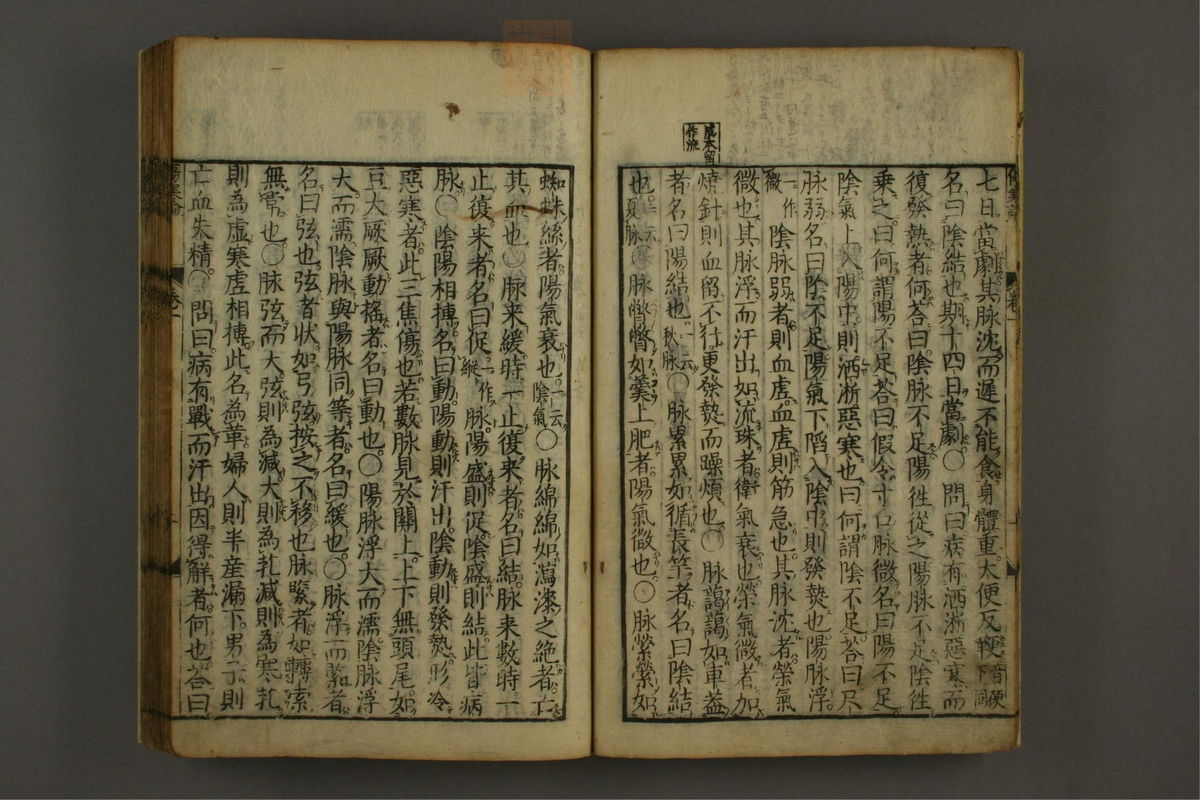 成本留
作流
七日當劇其脉沈而遲不能食身體重大便反鞕音硬下同
名曰陰結也期十四日當劇○問曰病有洒淅惡寒而
復發熱者何荅曰陰脉不足陽徃從之陽脉不足陰徃
乘之曰何謂陽不足荅曰假令寸口脉微名曰陽不足
陰氣上入陽中則洒淅惡寒也曰何謂陰不足荅曰尺
脉弱名曰陰不足陽氣下陷入陰中則發熱也陽脉浮
一作微陰脉弱者則血虛血虛則筋急也其脉沈者榮氣
微也其脉浮而汗出如流珠者衛氣衰也榮氣微者加
燒針則血留不行更發熱而躁煩也○脉藹藹如車蓋
者名曰陽結也一云秋脉○脉累累如循長竿者名曰陰結
也一云夏脉○脉瞥瞥如羹上肥者陽氣微也○脉縈縈如
蜘蛛絲者陽氣衰也一云陰氣○脉綿綿如瀉漆之絶者亡
其血也○脉来緩時一止復来者名曰結脉来數時一
止復来者名曰促一作縱脉陽盛則促陰盛則結此皆病
脉○陰陽相搏名曰動陽動則汗出陰動則發熱形冷
惡寒者此三焦傷也若數脉見於關上上下無頭尾如
豆大厥厥動搖者名曰動也○陽脉浮大而濡陰脉浮
大而濡陰脉與陽脉同等者名曰緩也○脉浮而緊者
名曰弦也弦者状如弓弦按之不移也脉緊者如轉索
無常也○脉弦而大弦則為減大則為芤減則為寒芤
則為虛寒虛相搏此名為革婦人則半産漏下男子則
亡血失精○問曰病有戰而汗出因得解者何也荅曰
卷一